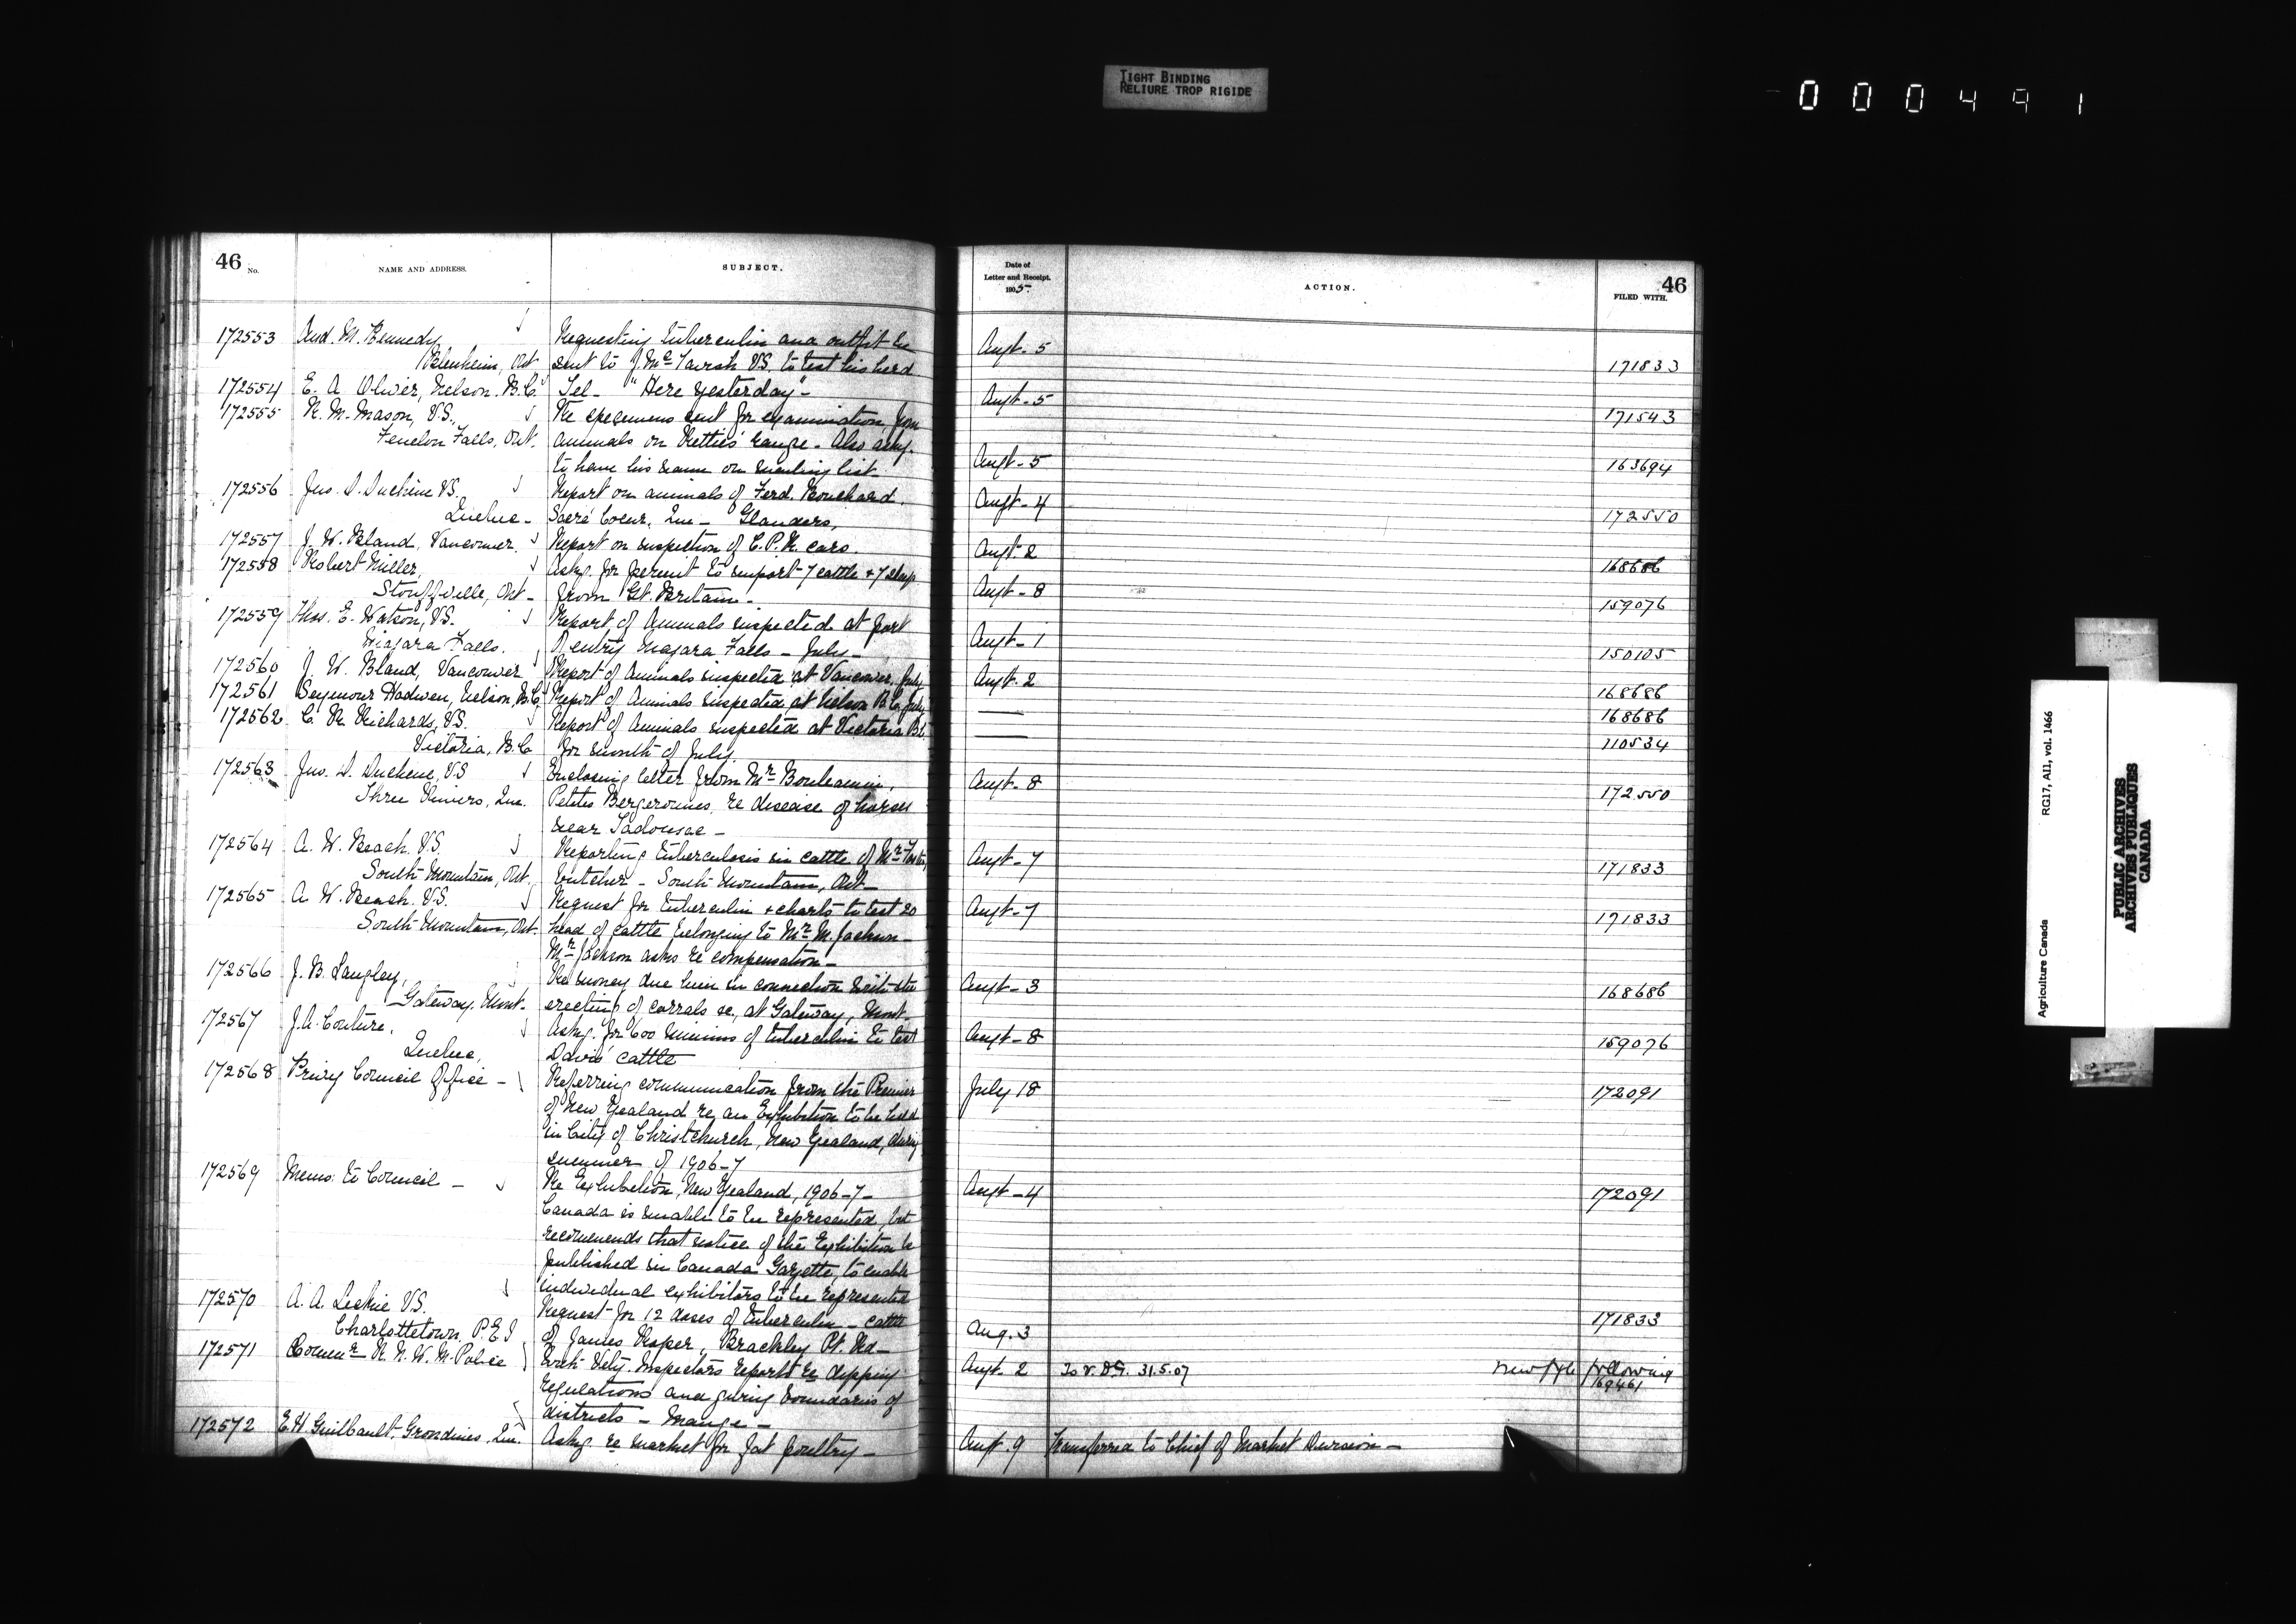 TIGHT BINDING
RELIURE TROP RIGIDE
000491
46 No. NAME AND ADDRESS. SUBJECT. Date of Letter and Receipt. 1905. ACTION. FILED WITH. 46
172553 And. M. Kennedy Requesting tuberculin and outfit be Augt. 5
Blenheim, Ont sent to J. McTavish V.S. to test his herd 171833
172554 E. A. Oliver, Nelson. B.C. Tel- "Here yesterday"- Augt. 5
172555 R. M. Mason, V.S., Re specimens sent for examination from 171543
Fenelon Falls, Ont. animals on Kettles' range. Also askg.
to have his name on mailing list Augt. 5 163694
172556 Jno. D. Duchene V.S. Report on animals of Ferd. Bouchard. Augt. 4
Quebec- Sacré Coeur, Que- Glanders, 172550
172557 J. W. Bland, Vancouver. Report on inspection of C.P.R. cars. Augt. 2
172558 Robert Miller, Askg. for permit to import 7 cattle + 7 sheep 168686
Stouffville, Ont- from Gt. Britain- Augt. 8 159076
172559 Thos. E. Watson, V.S. Report of Animals inspected at port
Niagara Falls. of entry Niagara Falls- July- Augt. 1 150105
172560 J. W. Bland, Vancouver Report of Animals inspected at Vancouver, July Augt. 2 168686
172561 Seymour Hadwen, Nelson, B.C. Report of Animals inspected at Nelson B.C. July — 168686
172562 C. R. Richards, V.S. Report of Animals inspected at Victoria B.C. — 110534
Victoria, B.C for month of July.
172563 Jno. D. Duchene, V.S Enclosing letter from Mr Augt. 8
Three Rivers, Que. Petites Bergeronnes, re disease of horses 172550
near Tadousac-
172564 A. W. Beach. V.S. Reporting tuberculosis in cattle of Mr Augt. 7
South Mountain, Ont. butcher - South Mountain, Ont- 171833
172565 A. W. Beach. V.S. Request for tuberculin + charts to test 20 Augt. 7
South Mountain, Ont. head of cattle belonging to Mr M. Jackson- 171833
Mr Jackson asks re compensation-
172566 J. B. Langley, Re money due him in connection with the Augt. 3
Gateway, Mont- erecting of corrals &c., at Gateway, Mont- 168686
172567 J. A. Couture, Askg. for 600 minims of tuberculin to test Augt. 8
Quebec, Davis' cattle 159076
172568 Privy Council Office - Referring communication from the Premier July 18 172091
of New Zealand re an Exhibition to be held
in City of Christchurch, New Zealand, during
summer of 1906-7
172569 Memo: to Council - Re Exhibition, New Zealand, 1906-7- Augt. 4 172091
Canada is unable to be represented, but
recommends that notice of the Exhibition be
published in Canada Gazette, to enable
individual exhibitors to be represented
172570 A. A. Leckie V.S. Request for 12 doses of tuberculin - cattle 171833
Charlottetown, P.E.I of James Roper, Brackley Pt. Rd- Aug. 3
172571 Commr R. N. W. M. Police With Vety. Inspectors reports re dipping Augt. 2 To V.D.G. 31.5.07 New file following
regulations and giving boundaries of 169461
districts - Mange-
172572 E. H. Guilbault, Grondines, Que. Askg. re market for fat poultry- Augt. 9 Transferred to Chief of Market Division-
Agriculture Canada RG17, AII, vol. 1466
PUBLIC ARCHIVES
ARCHIVES PUBLIQUES
CANADA